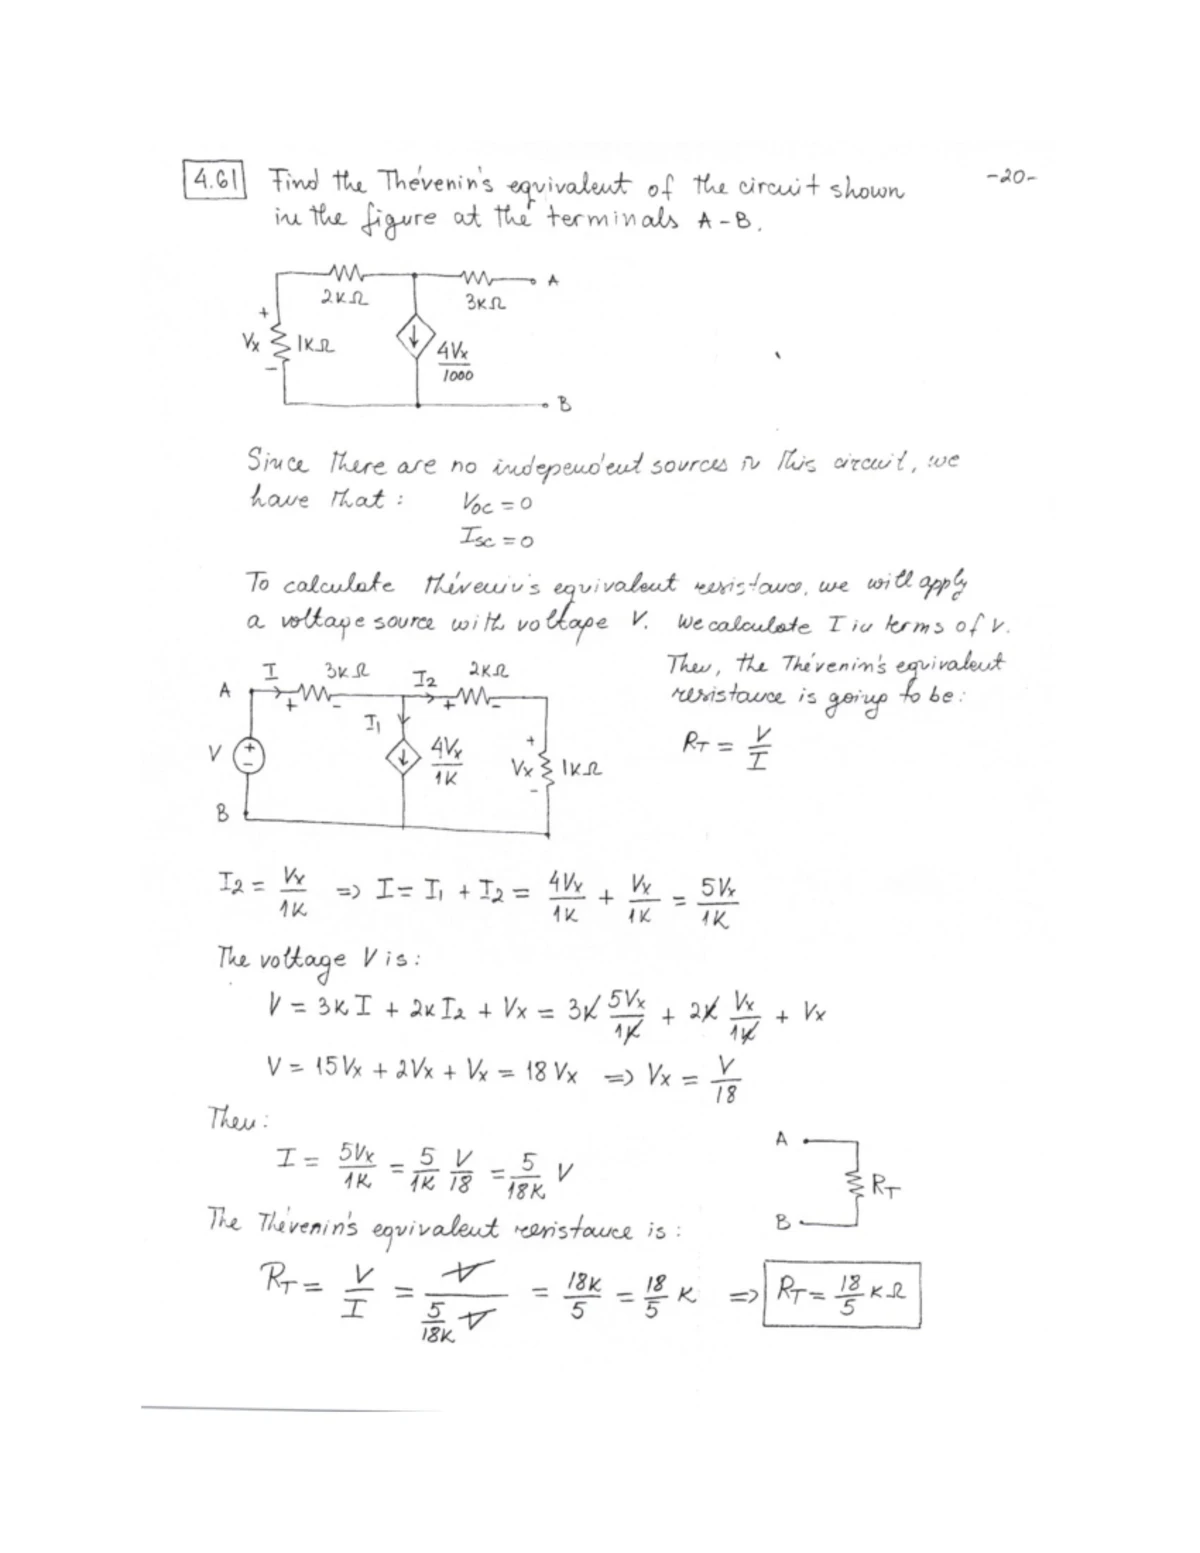 4.61 Find the Thévenin's equivalent of the circuit shown -20-
in the figure at the terminals A-B.
2KΩ 3KΩ A
+ Vx - 1KΩ 4Vx/1000
B
Since there are no independent sources in this circuit, we
have that: Voc = 0
Isc = 0
To calculate Thévenin's equivalent resistance, we will apply
a voltage source with voltage V. We calculate I in terms of V.
Then, the Thévenin's equivalent
resistance is going to be:
RT = V/I
A I 3KΩ I2 2KΩ
+ - + -
I1
V + - 4Vx/1K + Vx - 1KΩ
B
I2 = Vx/1K => I = I1 + I2 = 4Vx/1K + Vx/1K = 5Vx/1K
The voltage V is:
V = 3K I + 2K I2 + Vx = 3K 5Vx/1K + 2K Vx/1K + Vx
V = 15Vx + 2Vx + Vx = 18Vx => Vx = V/18
Then:
I = 5Vx/1K = 5/1K V/18 = 5/18K V
A
RT
B
The Thévenin's equivalent resistance is:
RT = V/I = V/(5/18K V) = 18K/5 = 18/5 K => RT = 18/5 KΩ